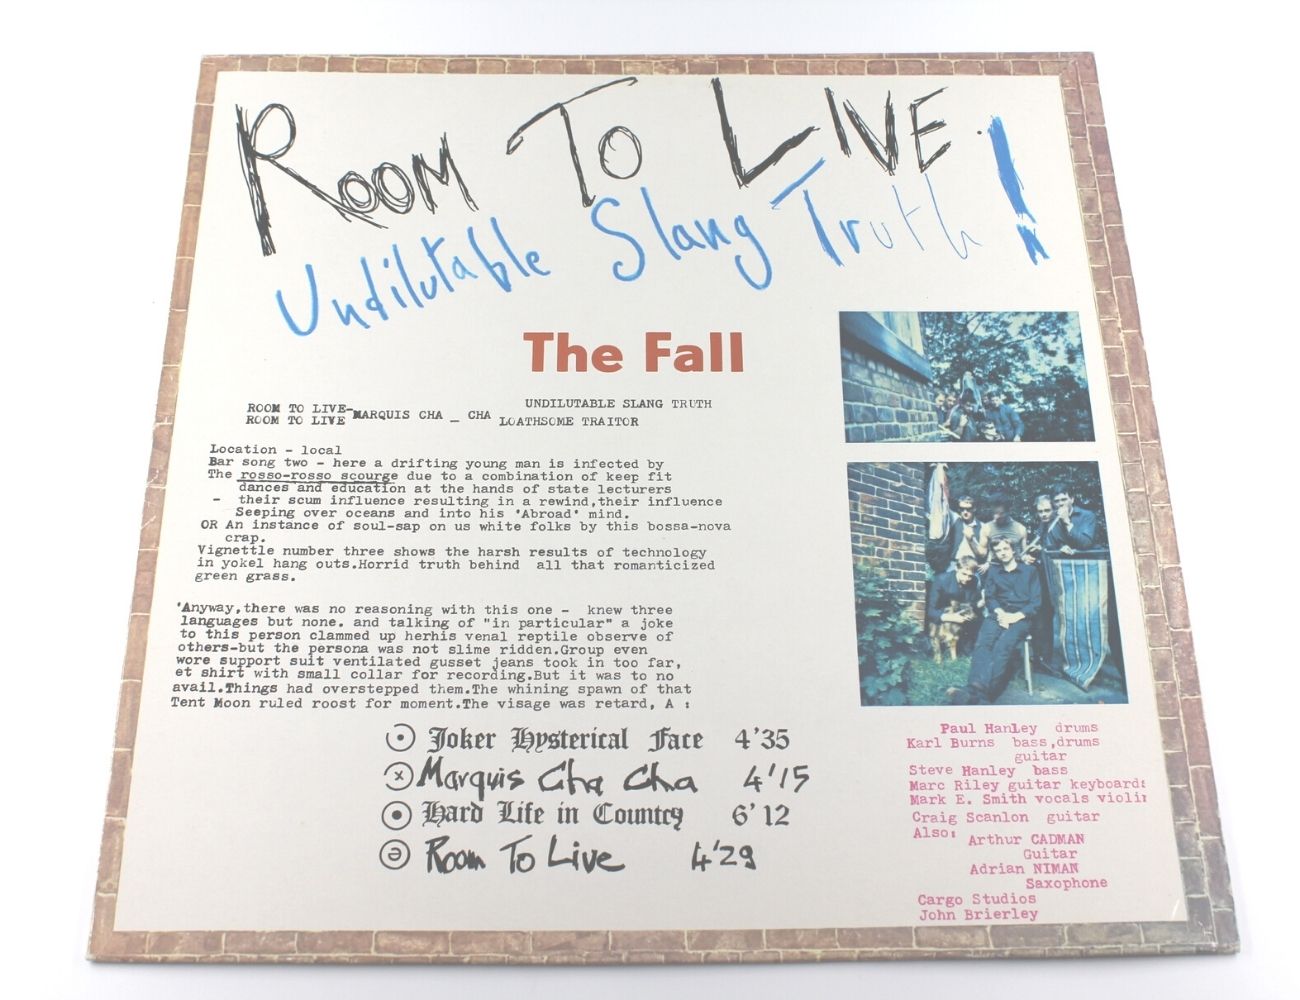 ROOM TO LIVE
Undilutable Slang Truth!
The Fall
ROOM TO LIVE- UNDILUTABLE SLANG TRUTH
ROOM TO LIVE MARQUIS CHA _ CHA LOATHSOME TRAITOR
Location - local
Bar song two - here a drifting young man is infected by
The rosso-rosso scourge due to a combination of keep fit
dances and education at the hands of state lecturers
- their scum influence resulting in a rewind,their influence
Seeping over oceans and into his 'Abroad' mind.
OR An instance of soul-sap on us white folks by this bossa-nova
crap.
Vignettle number three shows the harsh results of technology
in yokel hang outs.Horrid truth behind all that romanticized
green grass.
'Anyway,there was no reasoning with this one - knew three
languages but none. and talking of "in particular" a joke
to this person clammed up herhis venal reptile observe of
others-but the persona was not slime ridden.Group even
wore support suit ventilated gusset jeans took in too far,
et shirt with small collar for recording.But it was to no
avail.Things had overstepped them.The whining spawn of that
Tent Moon ruled roost for moment.The visage was retard, A :
Joker Hysterical Face 4'35
x Marquis Cha Cha 4'15
Hard Life in Country 6'12
Room To Live 4'29
Paul Hanley drums
Karl Burns bass,drums
guitar
Steve Hanley bass
Marc Riley guitar keyboards
Mark E. Smith vocals violin
Craig Scanlon guitar
Also:
Arthur CADMAN
Guitar
Adrian NIMAN
Saxophone
Cargo Studios
John Brierley